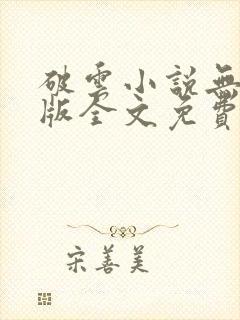 破雲小說無
版全文免費
宋善美